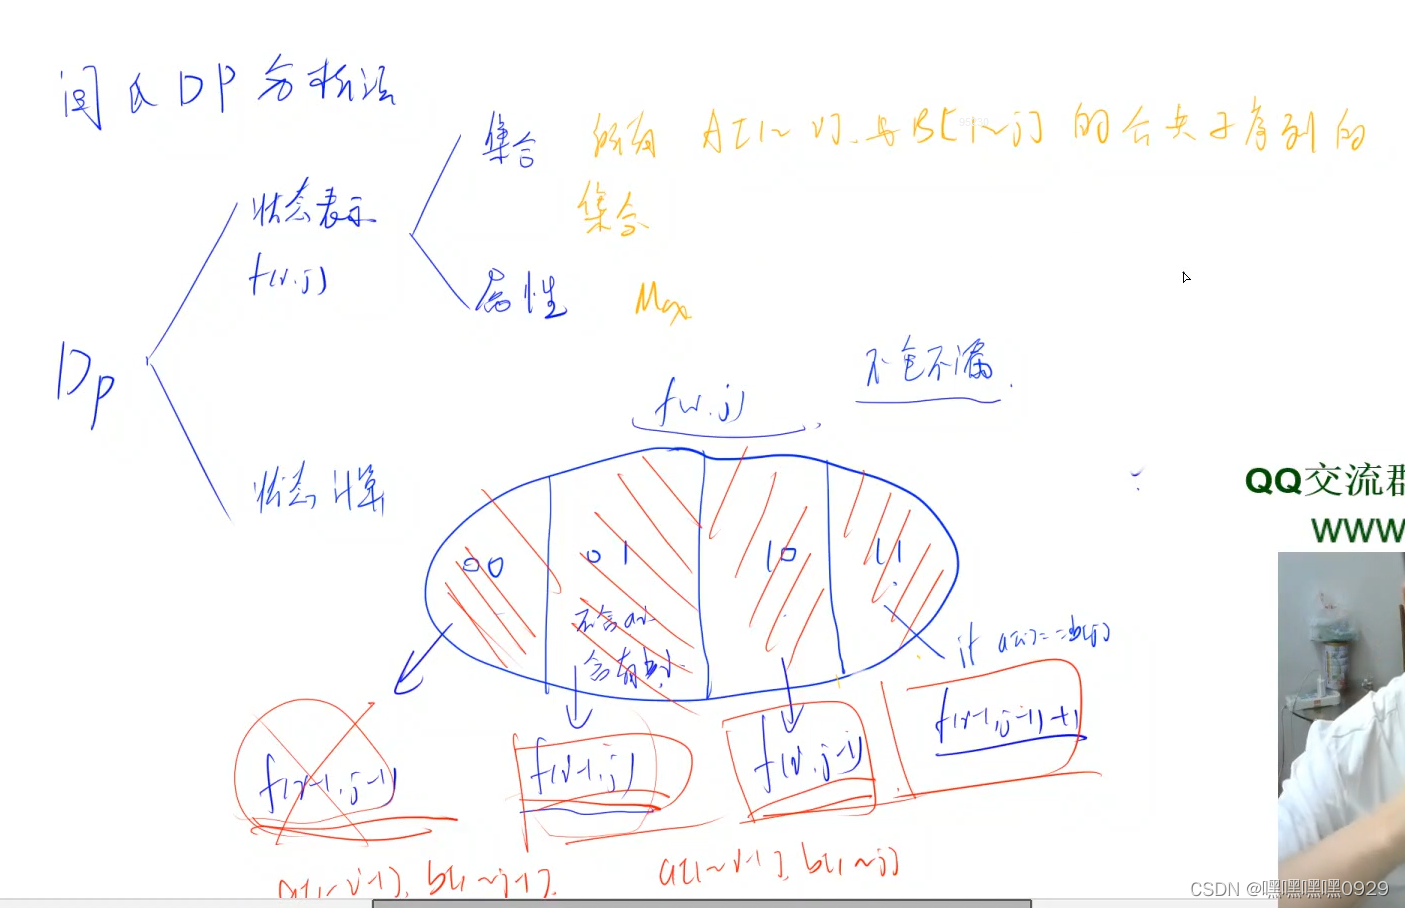 闫氏DP分析法
集合 所有 A[1~i]与B[1~j]的公共子序列的
集合
状态表示
f(i,j)
属性 Max
DP
不包不漏
f(i,j)
状态计算
QQ交流群
WWW
00 01 10 11
不含a[i]
含有b[j]
if a[i]==b[j]
f(i-1,j-1)+1
f(i-1,j-1) f(i-1,j) f(i,j-1)
a[1~i-1], b[1~j-1].
a[1~i-1], b[1~j]
CSDN @嘿嘿嘿嘿0929